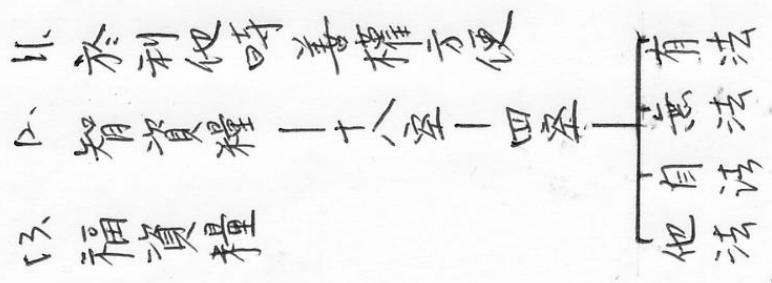 11、於利他時善權方便
12、智資糧—十八空—四空
有法
無法
自法
他法
13、福資糧